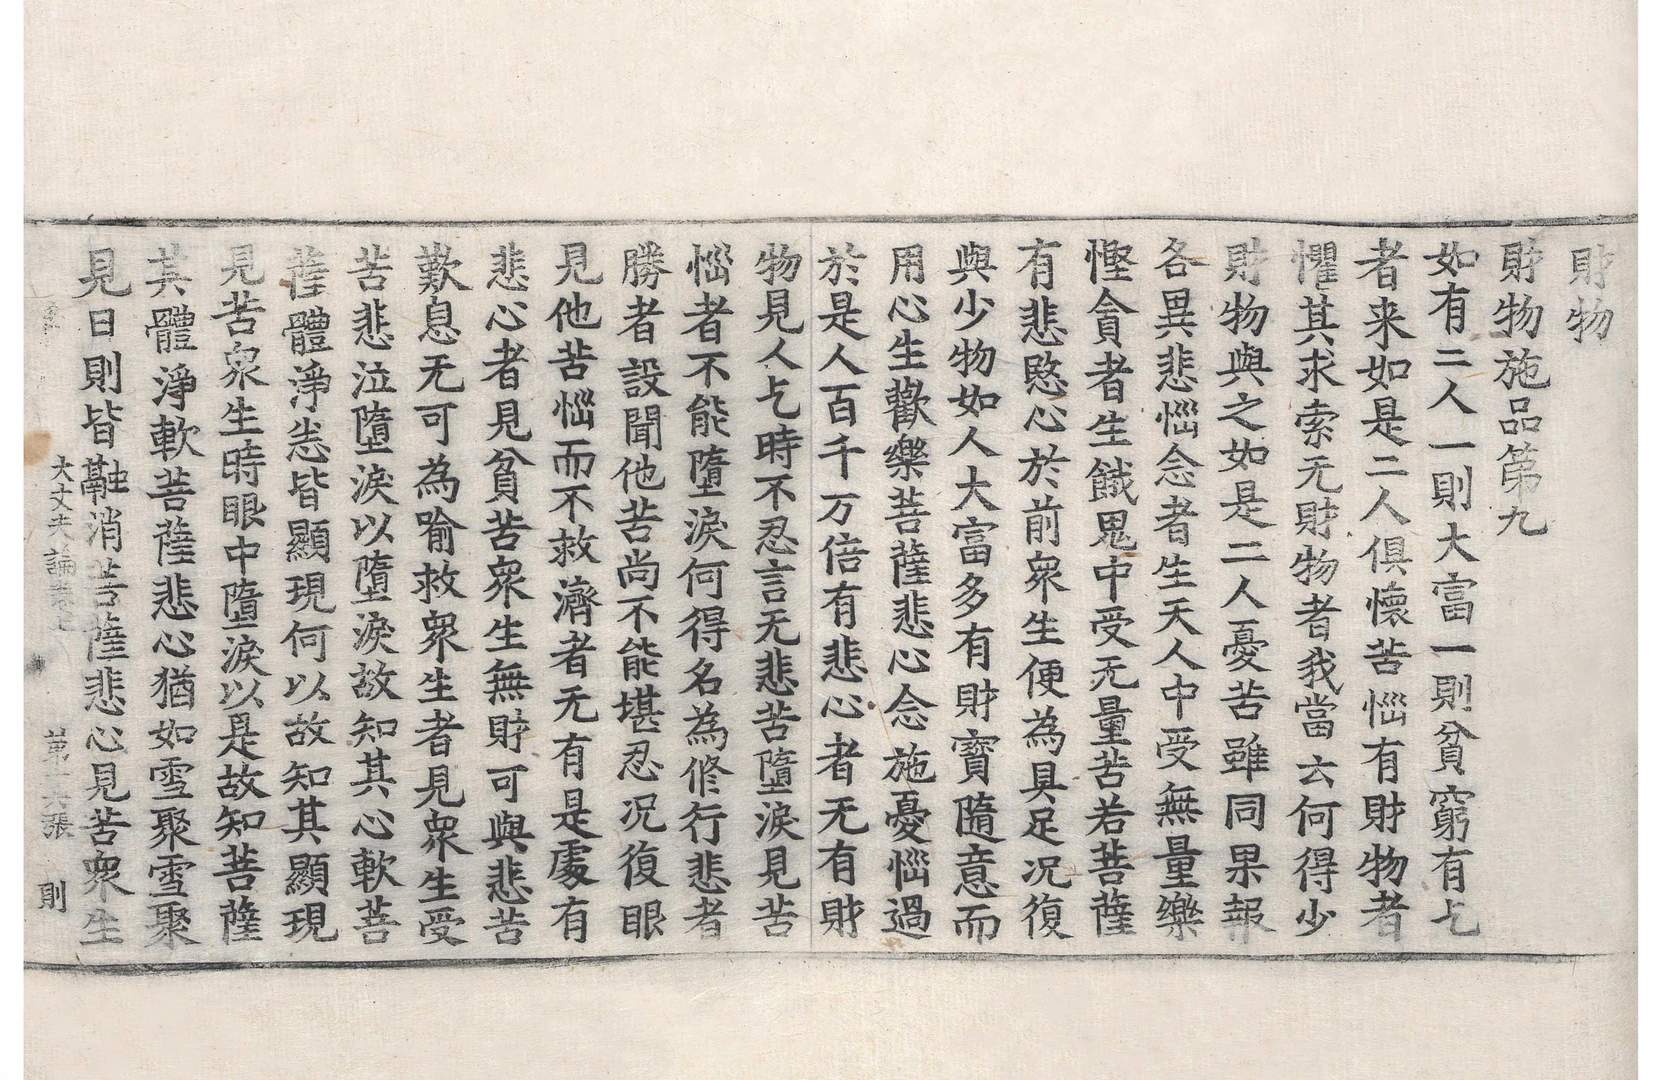 財物
財物施品第九
如有二人一則大富一則貧窮有乞
者来如是二人俱懷苦惱有財物者
懼其求索无財物者我當云何得少
財物與之如是二人憂苦雖同果報
各異悲惱念者生天人中受無量樂
慳貪者生餓鬼中受无量苦若菩薩
有悲愍心於前衆生便為具足况復
與少物如人大富多有財寶隨意而
用心生歡樂菩薩悲心念施憂惱過
於是人百千万倍有悲心者无有財
物見人乞時不忍言无悲苦墮淚見苦
惱者不能墮淚何得名為修行悲者
勝者設聞他苦尚不能堪忍况復眼
見他苦惱而不救濟者无有是處有
悲心者見貧苦衆生無財可與悲苦
歎息无可為喻救衆生者見衆生受
苦悲泣墮淚以墮淚故知其心軟菩
薩體淨恙皆顯現何以故知其顯現
見苦衆生時眼中墮淚以是故知菩薩
其體淨軟菩薩悲心猶如雪聚雪聚
見日則皆融消菩薩悲心見苦衆生
大丈夫論卷上 第六張 則